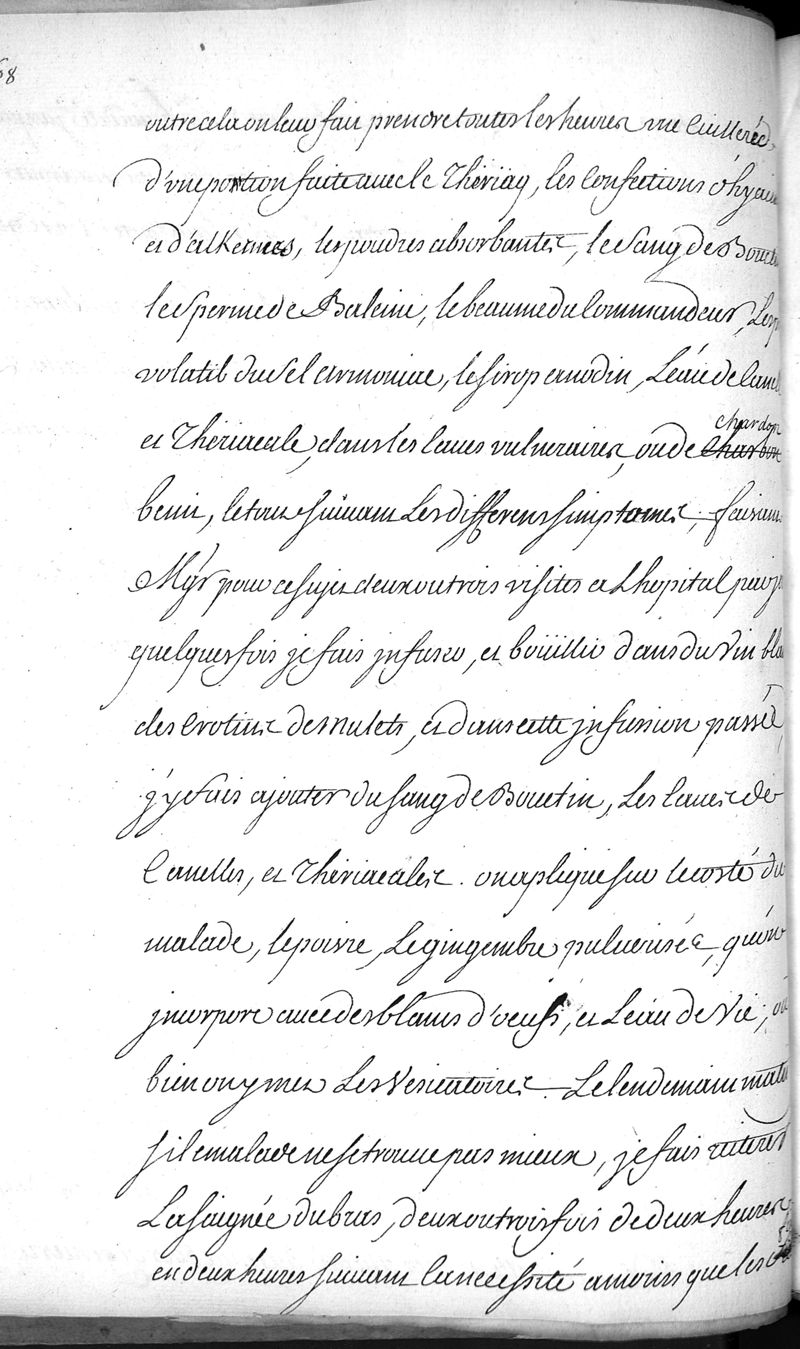 68
outre cela on leur fait prendre toutes les heures une Cuillerée
d'une portion faite avec le Thériaq, les Confections d'hyacin
et d'alKermes, les poudres absorbantes, le Sang de Bouctin
le Sperme de Baleine, le beaume du Commandeur, L'esp
volatil du Sel armoniac, le sirop anodin, L'eau de Canell
et Thériacale, dans les eaues vulneraires, ou de chardon
benit, le tout suivant Les differens simptomes, faisant
Mgr pour ce sujet deux ou trois visites a L'hopital par jo
quelques fois je fais jnfuser, et boüillir dans du Vin bla
des Crotins de mulets, et dans cette jnfusion passée,
j'y fais ajouter du sang de Bouctin, Les Eaues de
Canelles, et Thériacales. on aplique sur le costé du
malade, le poivre, Le gingembre pulverisée, qu'on
jncorpore avec des blancs d'oeufs, et L'eau de Vie, ou
bien on y met Les Vesicatoires. Le lendemain matin
si le malade ne se trouve pas mieux, je fais réiterer
La saignée du bras, deux ou trois fois de deux heures
en deux heures suivant la necessité a moins que les